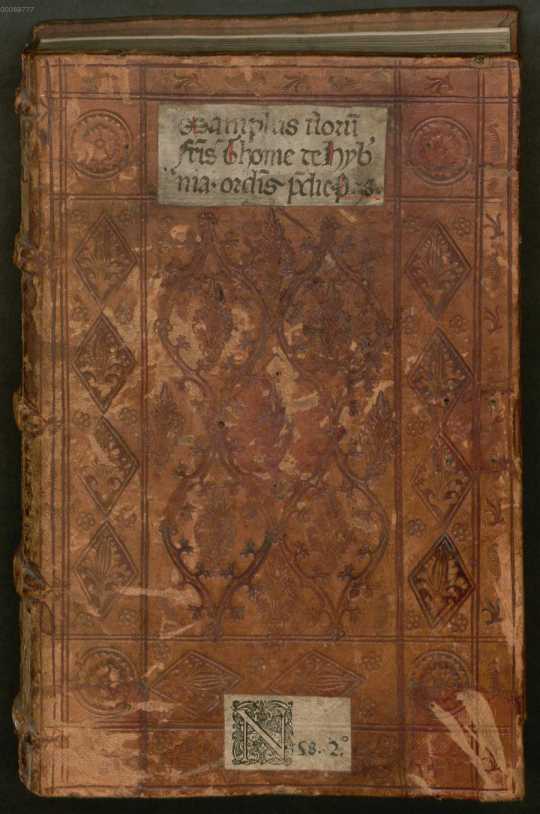 00069777
Examplar rerū
fr̄is Thome de Hyb'
nia. ordīs p̄dic
N 58. 2°